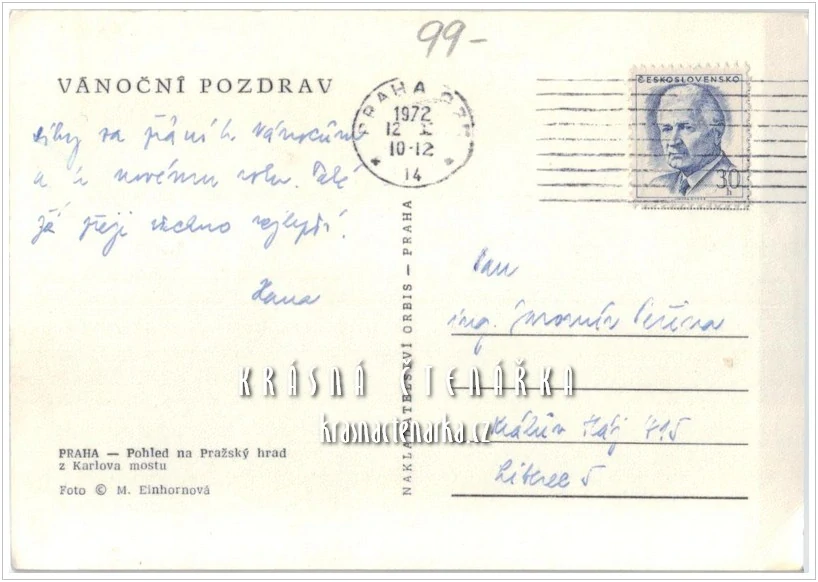 99-
VÁNOČNÍ POZDRAV
díky za přání k Vánocům
a k novému roku. Též
já přeji všechno nejlepší.
Hana
PRAHA — Pohled na Pražský hrad
z Karlova mostu
Foto © M. Einhornová
NAKLADATELSTVÍ ORBIS — PRAHA
PRAHA
1972
12
10-12
14
ČESKOSLOVENSKO
30
h
Pan
ing.
Králův Háj 415
Liberec 5
KRÁSNÁ ČTENÁŘKA
krasnactenarka.cz